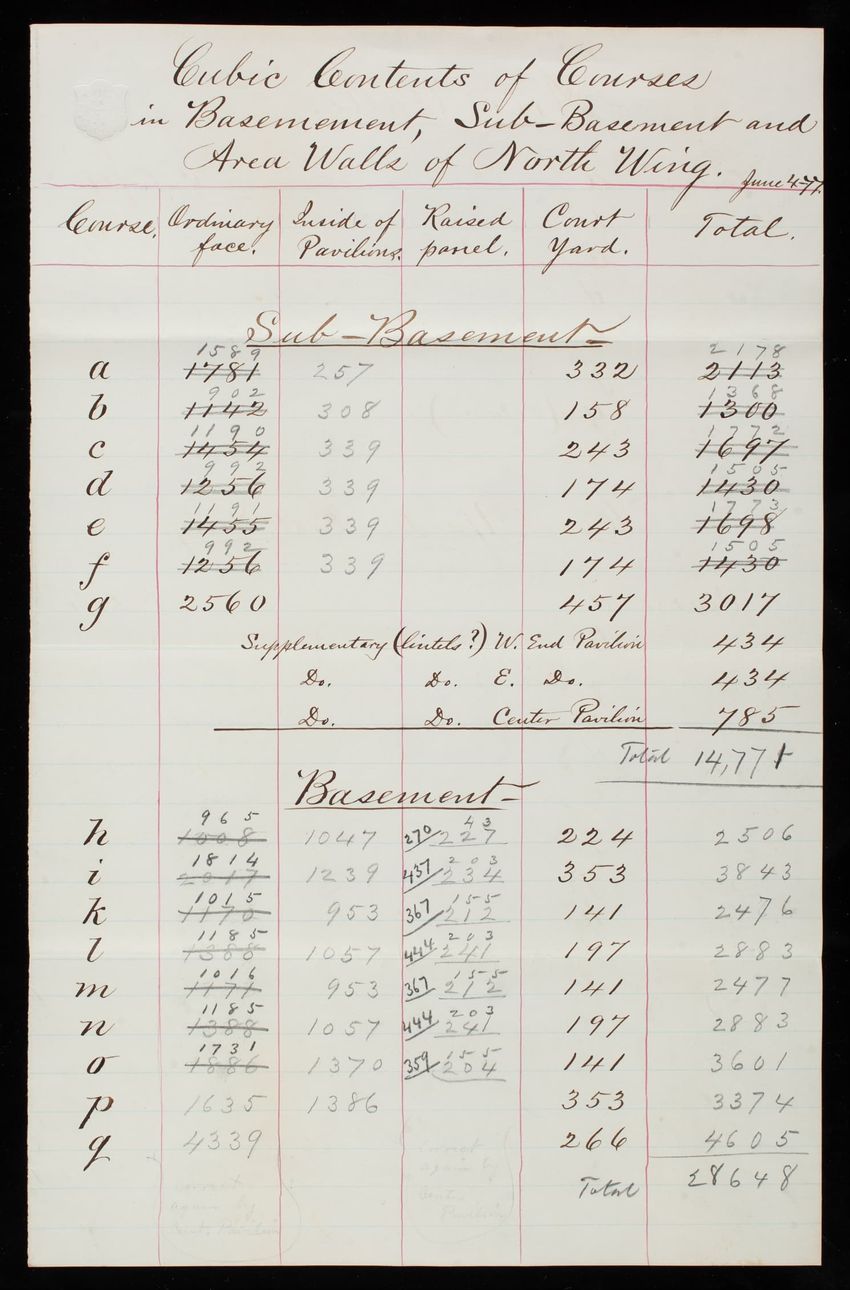 Cubic Contents of Courses
in Basemement, Sub-Basement and
Area Walls of North Wing. June 4-77.
Course. Ordinary face. Inside of Pavilions. Raised panel. Court Yard. Total.
Sub-Basement
1589 2178
a 1781 257 332 2113
902 1368
b 1142 308 158 1300
1190 1772
c 1454 339 243 1697
992 1505
d 1256 339 174 1430
1191 1773
e 1455 339 243 1698
992 1505
f 1256 339 174 1430
g 2560 457 3017
Supplementary (lintels?) W. End Pavilion 434
Do. Do. E. Do. 434
Do. Do. Center Pavilion 785
Total 14,771
Basement
965 43
h 1008 1047 270/227 224 2506
1814 203
i 2017 1239 437/234 353 3843
1015 155
k 1170 953 367/212 141 2476
1185 203
l 1388 1057 444/241 197 2883
1016 155
m 1171 953 367/212 141 2477
1185 203
n 1388 1057 444/241 197 2883
1731 155
o 1886 1370 359/204 141 3601
p 1635 1386 353 3374
q 4339 266 4605
Total 28648
correct correct
again by again by
Cent. Pavilion Center
Pavilion